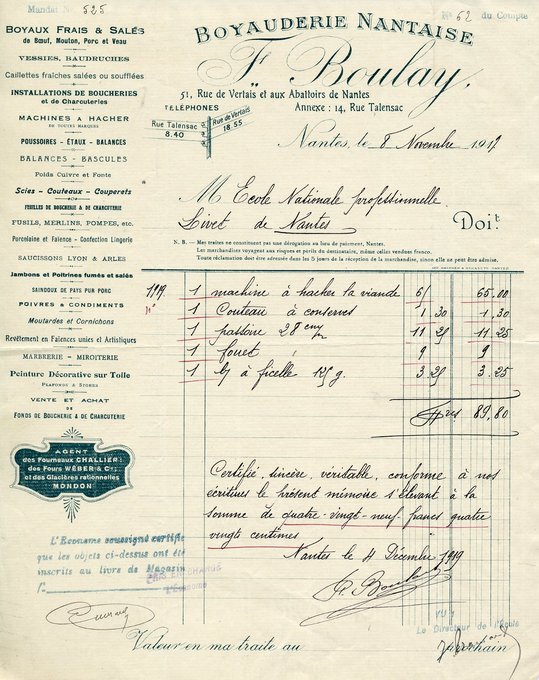 Mandat No 525
No 52 du Compte
BOYAUX FRAIS & SALÉS
de Bœuf, Mouton, Porc et Veau
VESSIES, BAUDRUCHES
Caillettes fraîches salées ou soufflées
INSTALLATIONS DE BOUCHERIES
et de Charcuteries
MACHINES A HACHER
DE TOUTES MARQUES
POUSSOIRS - ÉTAUX - BALANCES
BALANCES - BASCULES
Poids Cuivre et Fonte
Scies - Couteaux - Couperets
FEUILLES DE BOUCHERIE & DE CHARCUTERIE
FUSILS, MERLINS, POMPES, etc.
Porcelaine et Faïence - Confection Lingerie
SAUCISSONS LYON & ARLES
Jambons et Poitrines fumés et salés
SAINDOUX DE PAYS PUR PORC
POIVRES & CONDIMENTS
Moutardes et Cornichons
Revêtement en Faïences unies et Artistiques
MARBRERIE - MIROITERIE
Peinture Décorative sur Toile
PLAFONDS & STORES
VENTE ET ACHAT
DE
FONDS DE BOUCHERIE & DE CHARCUTERIE
AGENT
des Fourneaux CHALLIER;
des Fours WÉBER & Cie;
et des Glacières rationnelles
MONDON
BOYAUDERIE NANTAISE
F. Boulay,
51, Rue de Vertais et aux Abattoirs de Nantes
Annexe : 14, Rue Talensac
TÉLÉPHONES
Rue Talensac
8.40
Rue de Vertais
18.55
Nantes, le 8 Novembre 1919
M Ecole Nationale professionnelle
Livet de Nantes
Doit
N. B. — Mes traites ne constituent pas une dérogation au lieu de paiement, Nantes.
Les marchandises voyagent aux risques et périls du destinataire, même celles vendues franco.
Toute réclamation doit être adressée dans les 5 jours de la réception de la marchandise, sinon elle ne peut être admise.
1919. 1 machine à hacher la viande 65.00
1 Couteau à conserves 1 30 1.30
1 passoire 28 11 25 11.25
1 fouet 9 9
1 à ficelle 3 25 3.25
89,80
Certifié, sincère, véritable, conforme à nos
écritures le présent mémoire s'élevant à la
somme de quatre-vingt-neuf francs quatre
vingts centimes
Nantes le 4 Décembre 1919
F. Boulay
L'Econome soussigné certifie
que les objets ci-dessus ont été
inscrits au livre de Magasin
PRIS EN CHARGE
L'Econome
VU :
Le Directeur de l'Ecole
Valeur en ma traite au
prochain